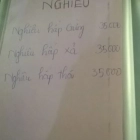 NGHIÊU
Nghêu hấp
Nghêu hấp xả 35000
Nghêu hấp thái 35,000